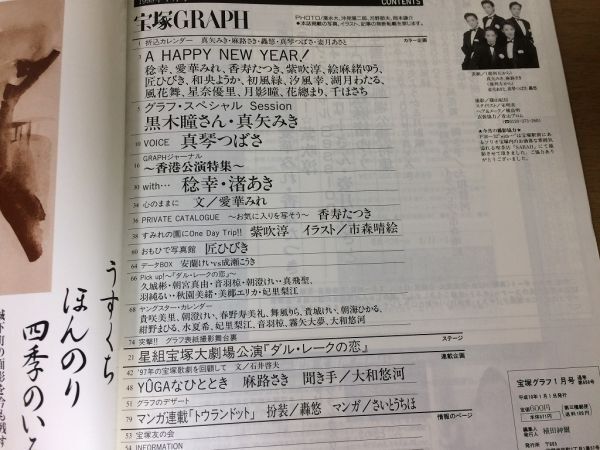 CONTENTS
宝塚GRAPH
PHOTO/
●本誌掲載の写真、イラスト、記事の無断転載を禁じます。
1 折込カレンダー 真矢みき・麻路さき・轟悠・真琴つばさ・姿月あさと
カラー企画
3 A HAPPY NEW YEAR!
稔幸、愛華みれ、香寿たつき、紫吹淳、絵麻緒ゆう、
匠ひびき、和央ようか、初風緑、汐風幸、湖月わたる、
風花舞、星奈優里、月影瞳、花總まり、千ほさち
5 グラフ・スペシャル Session
黒木瞳さん・真矢みき
10 VOICE 真琴つばさ
GRAPHジャーナル
16 〜香港公演特集〜
30 with… 稔幸・渚あき
34 心のままに 文/愛華みれ
36 PRIVATE CATALOGUE 〜お気に入りを写そう〜 香寿たつき
38 すみれの園にOne Day Trip!! 紫吹淳 イラスト/市森晴絵
60 おもひで写真館 匠ひびき
64 データBOX 安蘭けいvs成瀬こうき
66 Pick up!〜「ダル・レークの恋」〜
久城彬・朝宮真由・音羽椋・朝澄けい・真飛聖、
羽純るい・秋園美緒・美郷エリカ・妃里梨江
68 ヤングスター・カレンダー
貴咲美里、朝澄けい、春野寿美礼、舞風りら、貴城けい、朝海ひかる、
紺野まひる、水夏希、妃里梨江、音羽椋、霧矢大夢、大和悠河
74 突撃!! グラフ表紙撮影舞台裏
ステージ
21 星組宝塚大劇場公演『ダル・レークの恋』
連載企画
42 '97年の宝塚歌劇を回顧して 文/石井啓夫
48 YŪGAなひととき 麻路さき 聞き手/大和悠河
51 グラフのデザート
79 マンガ連載「トゥランドット」 扮装/轟悠 マンガ/さいとうちほ
情報のページ
53 宝塚友の会
54 INFORMATION
宝塚グラフ1月号
平成10年1月1日発行
定価600円
編集人
発行人
植田紳爾
発行所
うすくち
ほんのり
四季のいろ
城下町の面影を今も残す